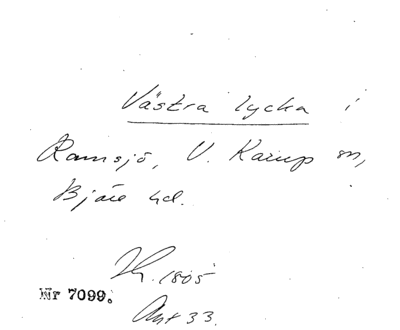 Västra lycka i
Ramsjö, V. Karup sn,
Bjäre hd.
Jh. 1805
Nr 7099.
Akt 33.